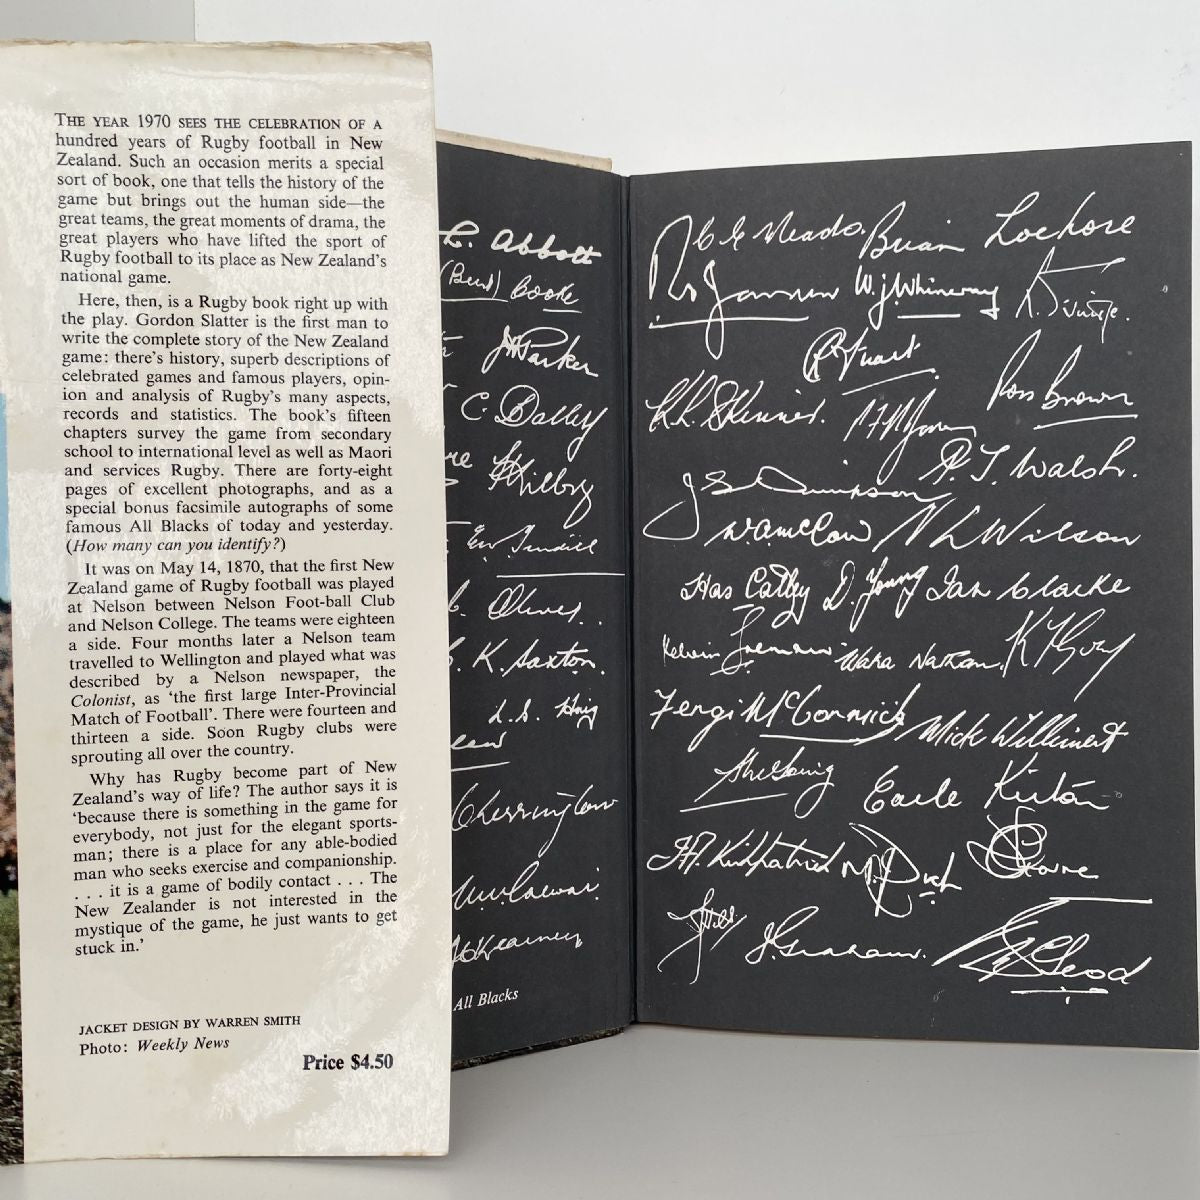 THE YEAR 1970 SEES THE CELEBRATION OF A
hundred years of Rugby football in New
Zealand. Such an occasion merits a special
sort of book, one that tells the history of the
game but brings out the human side—the
great teams, the great moments of drama, the
great players who have lifted the sport of
Rugby football to its place as New Zealand's
national game.
Here, then, is a Rugby book right up with
the play. Gordon Slatter is the first man to
write the complete story of the New Zealand
game: there's history, superb descriptions of
celebrated games and famous players, opin-
ion and analysis of Rugby's many aspects,
records and statistics. The book's fifteen
chapters survey the game from secondary
school to international level as well as Maori
and services Rugby. There are forty-eight
pages of excellent photographs, and as a
special bonus facsimile autographs of some
famous All Blacks of today and yesterday.
(How many can you identify?)
It was on May 14, 1870, that the first New
Zealand game of Rugby football was played
at Nelson between Nelson Foot-ball Club
and Nelson College. The teams were eighteen
a side. Four months later a Nelson team
travelled to Wellington and played what was
described by a Nelson newspaper, the
Colonist, as 'the first large Inter-Provincial
Match of Football'. There were fourteen and
thirteen a side. Soon Rugby clubs were
sprouting all over the country.
Why has Rugby become part of New
Zealand's way of life? The author says it is
'because there is something in the game for
everybody, not just for the elegant sports-
man; there is a place for any able-bodied
man who seeks exercise and companionship.
. . . it is a game of bodily contact . . . The
New Zealander is not interested in the
mystique of the game, he just wants to get
stuck in.'
JACKET DESIGN BY WARREN SMITH
Photo: Weekly News
Price $4.50
L. Abbott
(Bert) Cooke
Parker
C. Badeley
Kilby
Oliver.
C. K. Saxton.
L. S. Haig
Cherrington
Kearney
All Blacks
C E Meads. Brian Lochore
W. J. Whineray
R Stuart
K. L. Skinner. Ross Brown
P. T. Walsh.
W. A. McCaw N L Wilson
Has Catley D. Young Ian Clarke
Kelvin Tremain Waka Nathan. K F Gray
Fergi McCormick Mick Williment
Earle Kirton
I A. Kirkpatrick M. Dick Thorne
J. Graham. McLeod